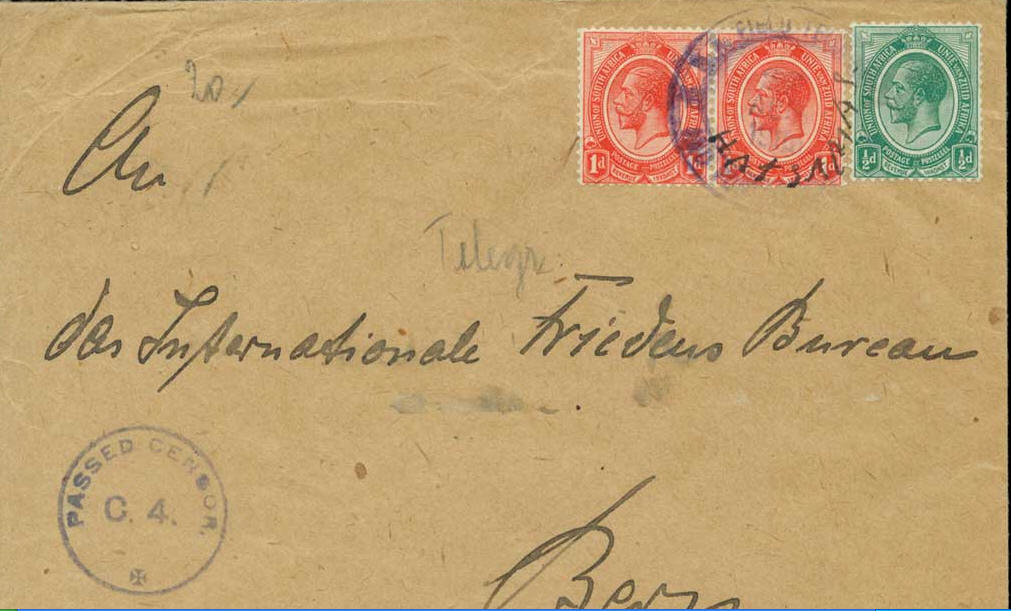 UNION OF SOUTH AFRICA UNIE VAN ZUID AFRIKA
POSTAGE POSTZEGEL
REVENUE INKOMST
1d
UNION OF SOUTH AFRICA UNIE VAN ZUID AFRIKA
1d
UNION OF SOUTH AFRICA UNIE VAN ZUID AFRIKA
POSTAGE POSTZEGEL
REVENUE INKOMST
½d ½d
An
Telegr.
das Internationale Friedens Bureau
PASSED CENSOR.
C. 4.
Bern